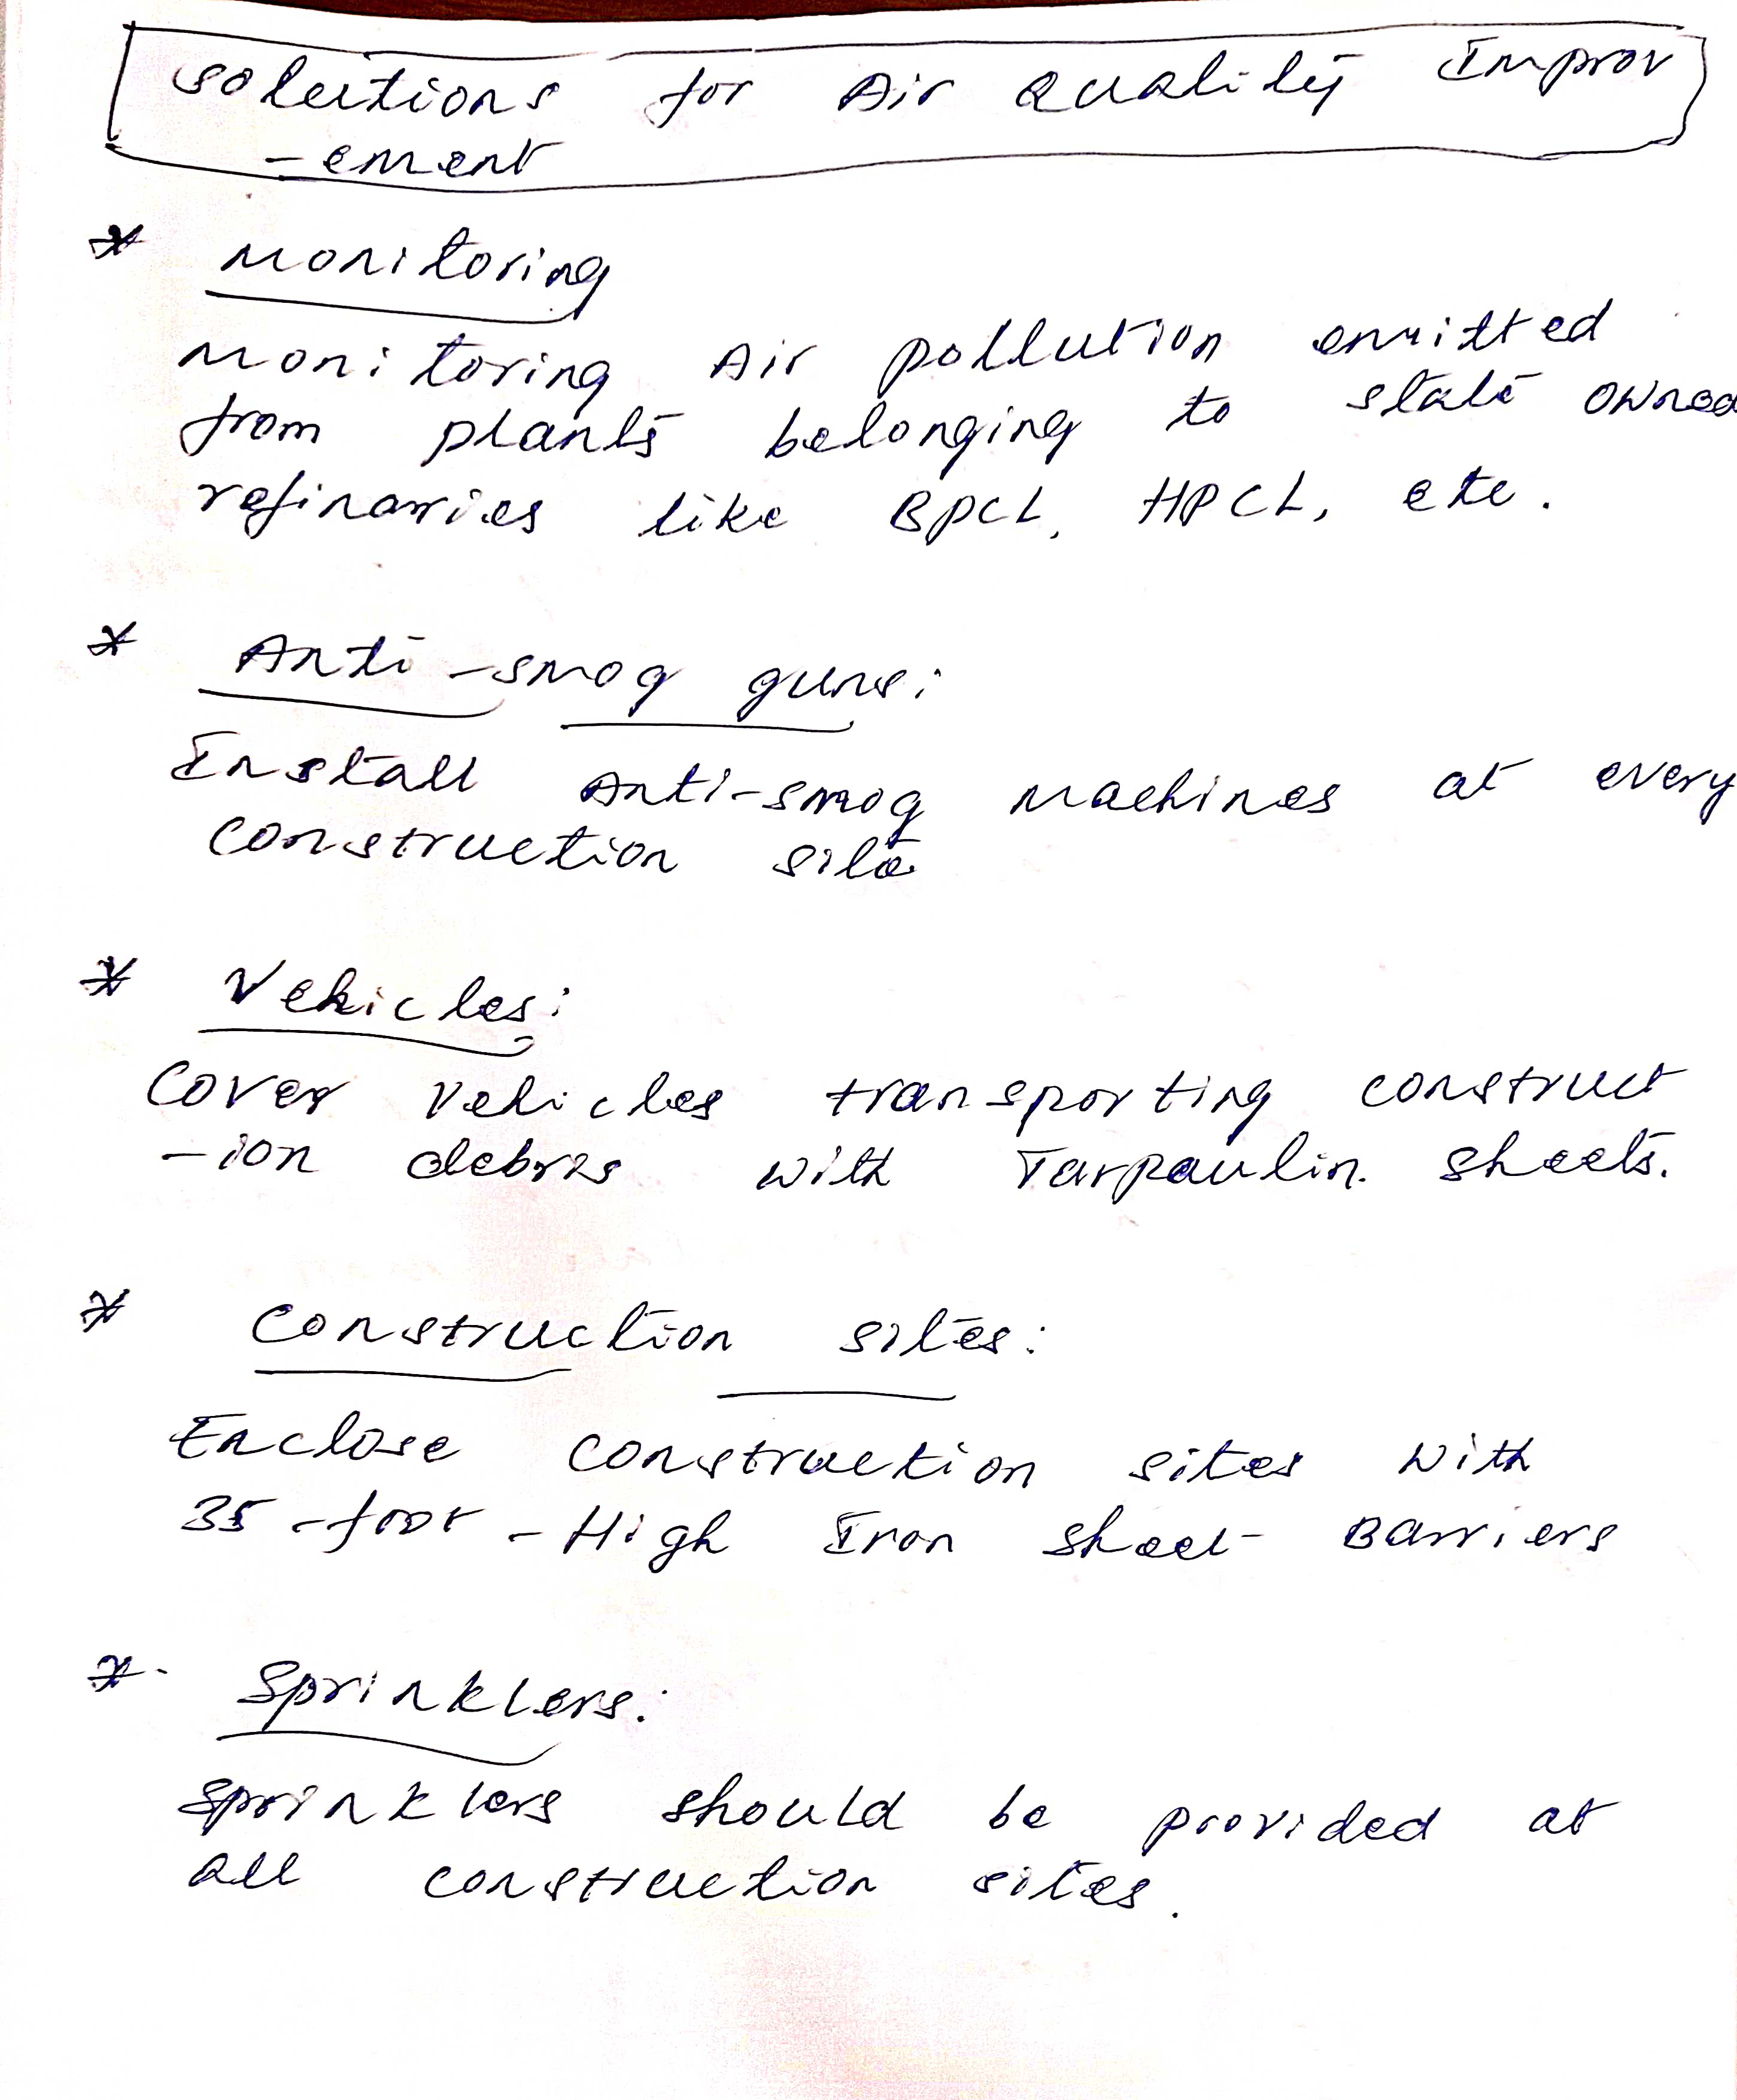 Solutions for Air Quality Improv
-ement
* Monitoring
Monitoring Air pollution emitted
from plants belonging to state owned
refinarries like BPCL, HPCL, etc.
* Anti-smog guns:
Install Anti-smog machines at every
construction site
* Vehicles:
Cover vehicles transporting construct
-ion debris with Tarpaulin sheets.
* Construction sites:
Enclose construction sites with
35-foot-High Iron sheet Barriers
* Sprinklers:
Sprinklers should be provided at
all construction sites.